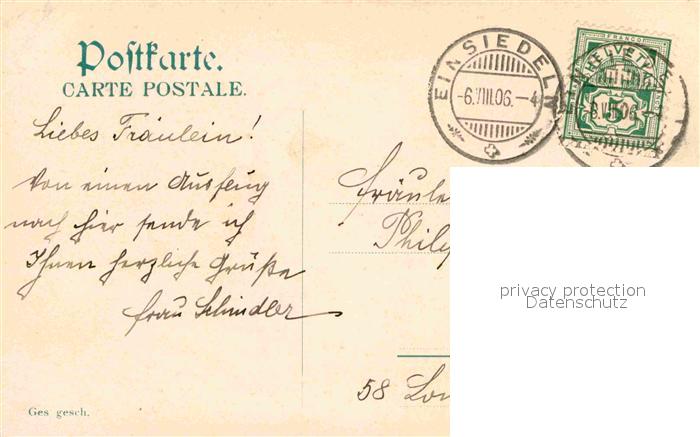 Postkarte.
CARTE POSTALE.
EINSIEDELN
-6.VIII.06.-4
FRANCO
HELVETIA
5
Liebes Fräulein!
Von einen Ausflug
nach hier sende ich
Ihnen herzliche Grüße
Frau Schindler
Fräule
Philip
58 Lon
Ges gesch.
privacy protection
Datenschutz